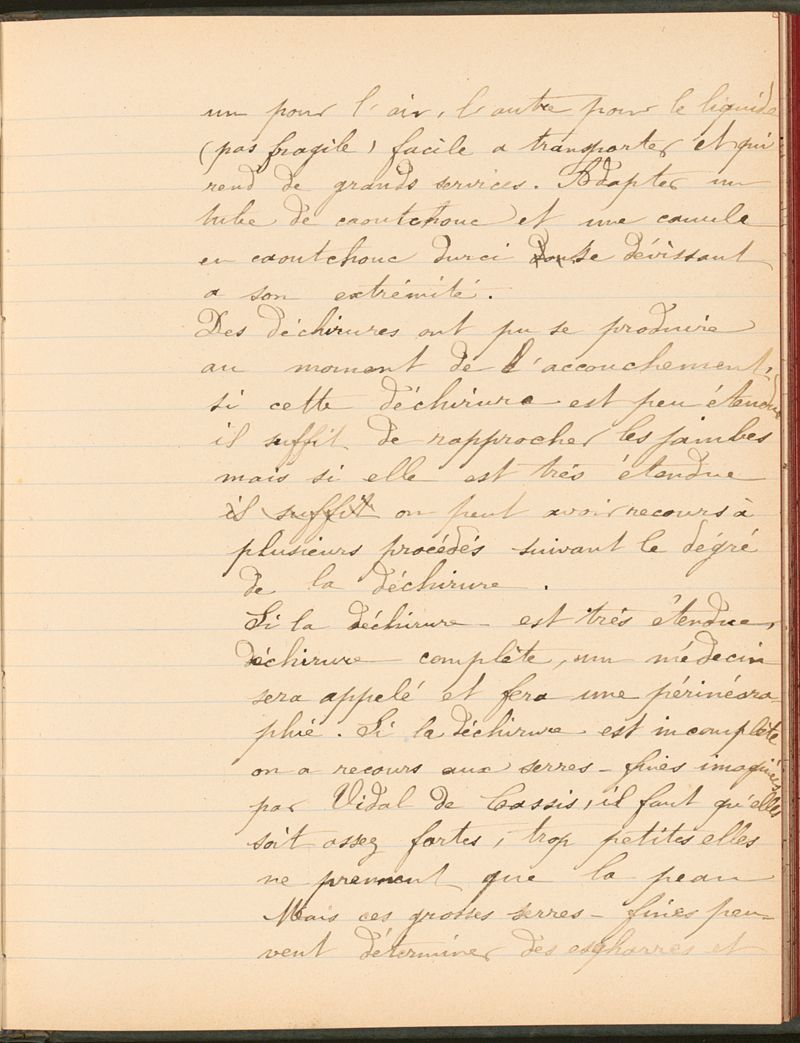 un pour l'air, l'autre pour le liquide
(pas fragile) facile a transporter et qui
rend de grands services. Adapter un
tube de caoutchouc et une canule
en caoutchouc durci se dévissant
a son extrémité.
Des déchirures ont pu se produire
au moment de l'accouchement,
si cette déchirure est peu étendue
il suffit de rapprocher les jambes
mais si elle est trés étendue
il suffit on peut avoir recours à
plusieurs procédés suivant le dégré
de la déchirure.
Si la déchirure est trés étendue,
déchirure complète, un médecin
sera appelé et fera une périnéora-
phie. Si la déchirure est incomplète
on a recours aux serres-fines imaginées
par Vidal de Cassis, il faut qu'elles
soit assez fortes, trop petites elles
ne prennent que la peau
Mais ces grosses serres-fines peu-
vent déterminer des esgharres et